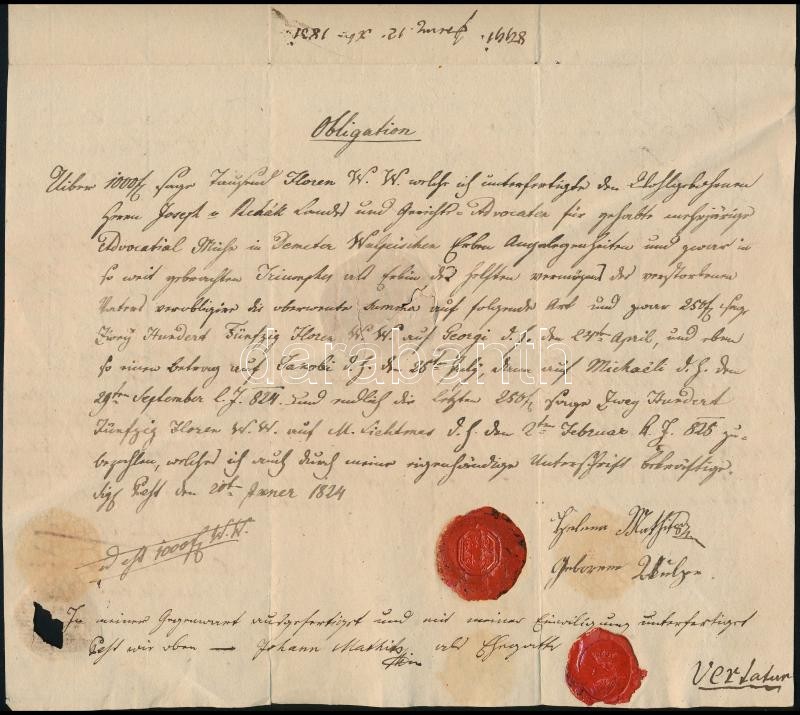 Obligation
Uiber 1000f sage Tausend Floren W. W. welche ich unterfertigte den Wohlgebohrenen
Herrn Joseph v Landes und Gerichts-Advocaten für gehabte mehrjärige
Advocatial Mühe in Demeter Wulpeischen Erben Angelegenheiten und zwar in
so weit gebrachten Triumphes als Erbin des helften vermögens des verstorbenen
Vaters verobligire die oberwente Summa auf folgende Art und zwar 250f sage
Zwey Hundert Fünfzig Floren W. W. auf Georgi d. J. den 24ten April, und eben
so einen betrag auf Jakobi d. h. den 25ten July, dann auf Michaeli d. h. den
29ten September l. J. 824. und endlich die letzten 250f sage Zwey Hundert
Fünfzig Floren W. W. auf M. Lichtmes d. h. den 2ten Februar k. J. 825 zu-
bezahlen, welches ich auch durch meine eigenhändige Unterschrift bekräftige.
Sig Pest den 20ten Jäner 1824
id est 1000f W. W.
Helena Mathits
Geborene Wulpe.
In meiner Gegenwart ausgefertiget und mit meiner Einwiligung unterfertiget
Pest wie oben — Johann Mathits als Ehegatte
Vertatur
darabanth